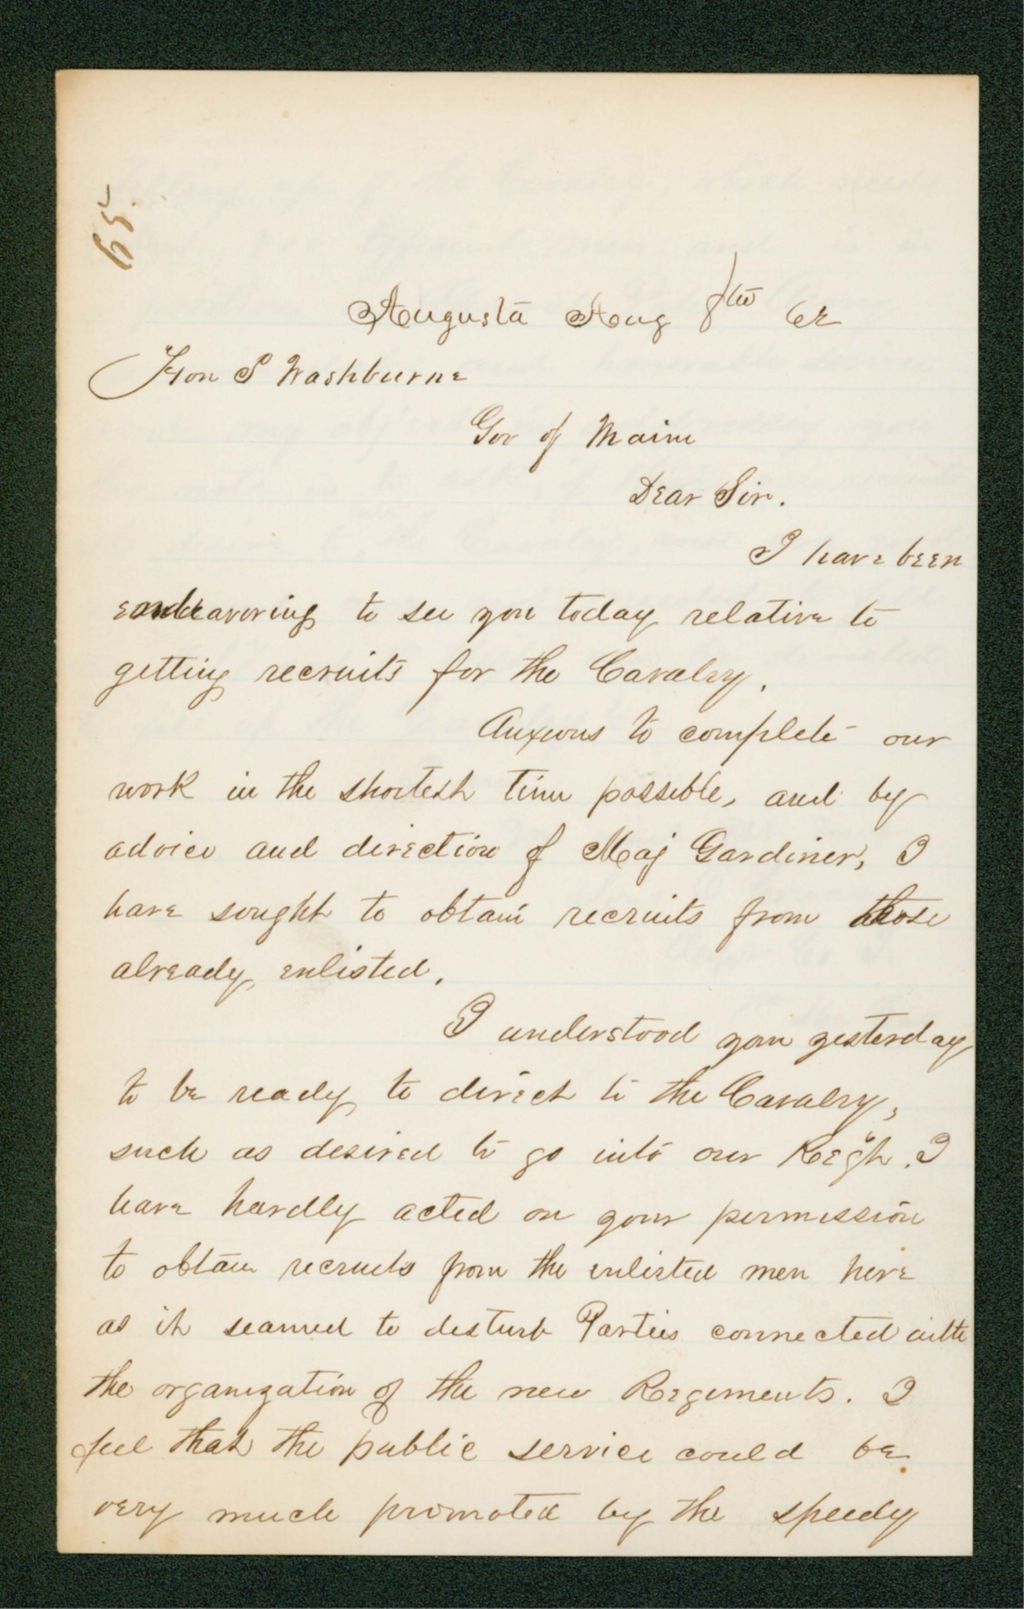 65.
Augusta Aug 8th 62
Hon I Washburne
Gov of Maine
Dear Sir.
I have been
endeavoring to see you today relative to
getting recruits for the Cavalry.
Anxious to complete our
work in the shortest time possible, and by
advice and direction of Maj Gardiner, I
have sought to obtain recruits from those
already enlisted.
I understood you yesterday
to be ready to direct to the Cavalry,
such as desired to go into our Regt. I
have hardly acted on your permission
to obtain recruits from the enlisted men here
as it seamed to disturb Parties connected with
the organization of the new Regiments. I
feel that the public service could be
very much promoted by the speedy